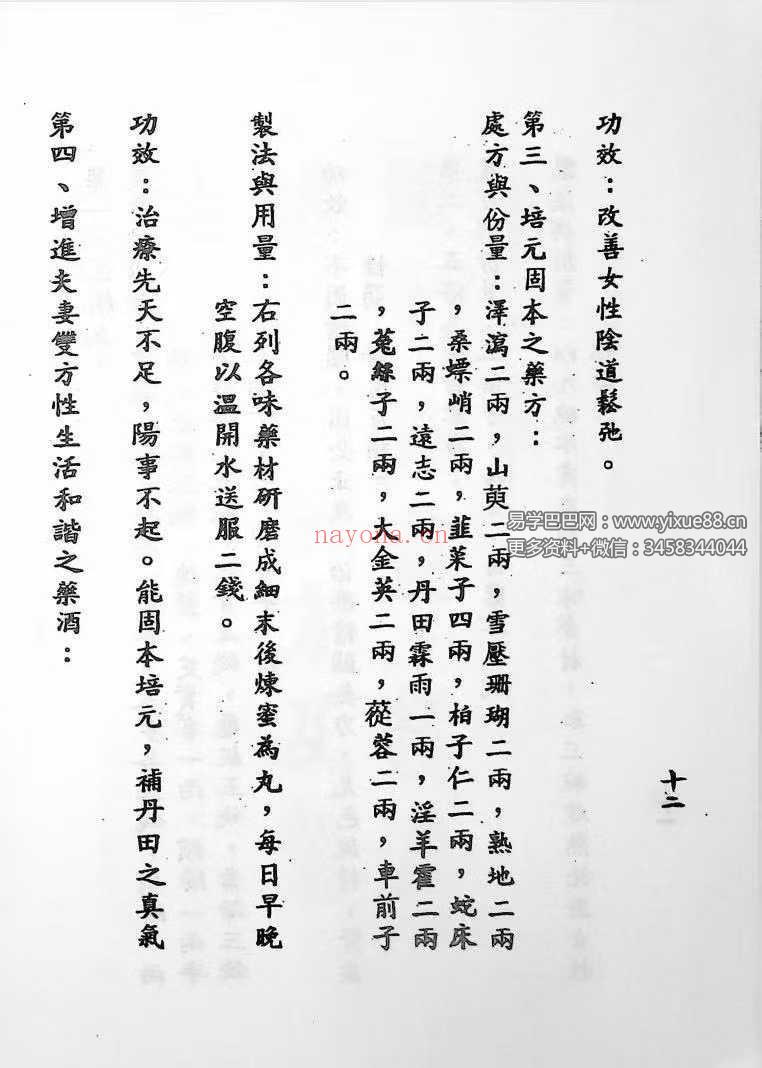 功效：改善女性陰道鬆弛。
第三、培元固本之藥方：
處方與份量：澤瀉二兩，山萸二兩，雪壓珊瑚二兩，熟地二兩
，桑螵蛸二兩，韮菜子四兩，柏子仁二兩，蛇床
子二兩，遠志二兩，丹田霖雨一兩，淫羊霍二兩
，菟絲子二兩，大金英二兩，蓯蓉二兩，車前子
二兩。
製法與用量：右列各味藥材研磨成細末後煉蜜為丸，每日早晚
空腹以溫開水送服二錢。
功效：治療先天不足，陽事不起。能固本培元，補丹田之真氣
第四、增進夫妻雙方性生活和諧之藥酒：
十二
nayona.cn
易学巴巴网：www.yixue88.cn
更多资料+微信：3458344044